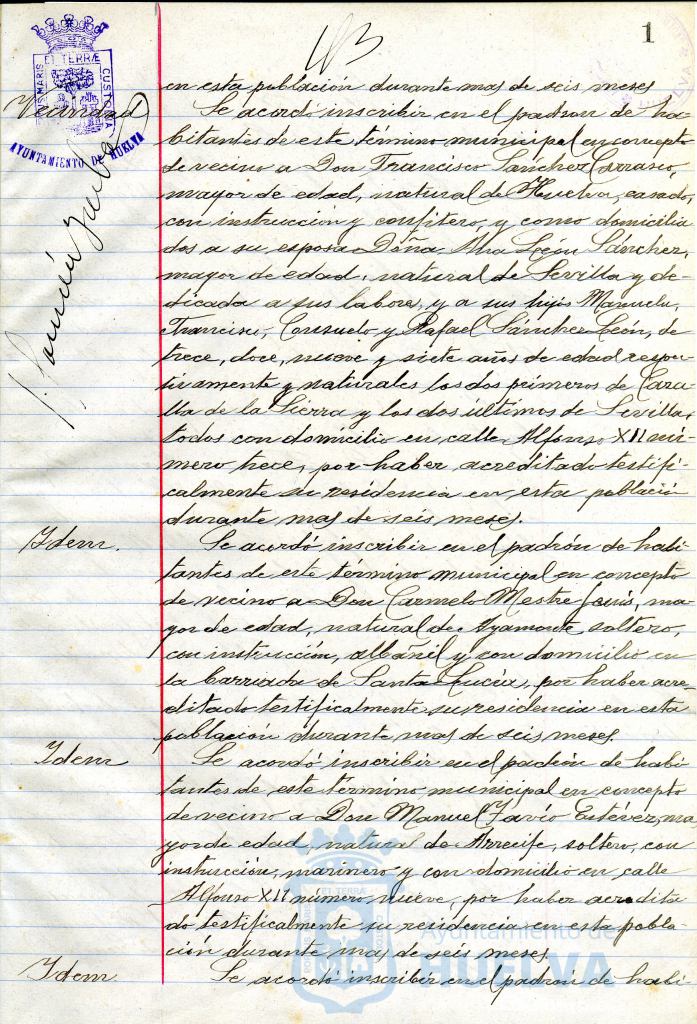 1
ET TERRÆ
CUSTODIA
AYUNTAMIENTO DE HUELVA
en esta población durante mas de seis meses
Vecindad
Se acordó inscribir en el padrón de ha-
bitantes de este término municipal en concepto
de vecino a Don Francisco Sánchez Carrasco,
mayor de edad, natural de Huelva, casado,
con instrucción y confitero, y como domicilia
dos a su esposa Doña Ana León Sánchez,
mayor de edad, natural de Sevilla y de-
dicada a sus labores, y a sus hijos Manuela,
Francisco, Consuelo y Rafael Sánchez León, de
trece, doce, nueve y siete años de edad respec-
tivamente y naturales los dos primeros de
lla de la Sierra y los dos últimos de Sevilla,
todos con domicilio en calle Alfonso XII nú-
mero trece, por haber acreditado testifi-
calmente su residencia en esta población
durante mas de seis meses.
Idem.
Se acordó inscribir en el padrón de habi-
tantes de este término municipal en concepto
de vecino a Don Carmelo Mestre Jesús, ma-
yor de edad, natural de Ayamonte, soltero,
con instrucción, albañil y con domicilio en
la barriada de Santa Lucía, por haber acre-
ditado testificalmente su residencia en esta
población durante mas de seis meses.
Idem
Se acordó inscribir en el padrón de habi-
tantes de este término municipal en concepto
de vecino a Don Manuel Favío Estévez, ma
yor de edad, natural de Arrecife, soltero, con
instrucción, marinero y con domicilio en calle
Alfonso XII número nueve, por haber acredita
do testificalmente su residencia en esta pobla-
ción durante mas de seis meses.
Idem.
Se acordó inscribir en el padrón de habi-
ET TERRÆ
Ayuntamiento de
HUELVA